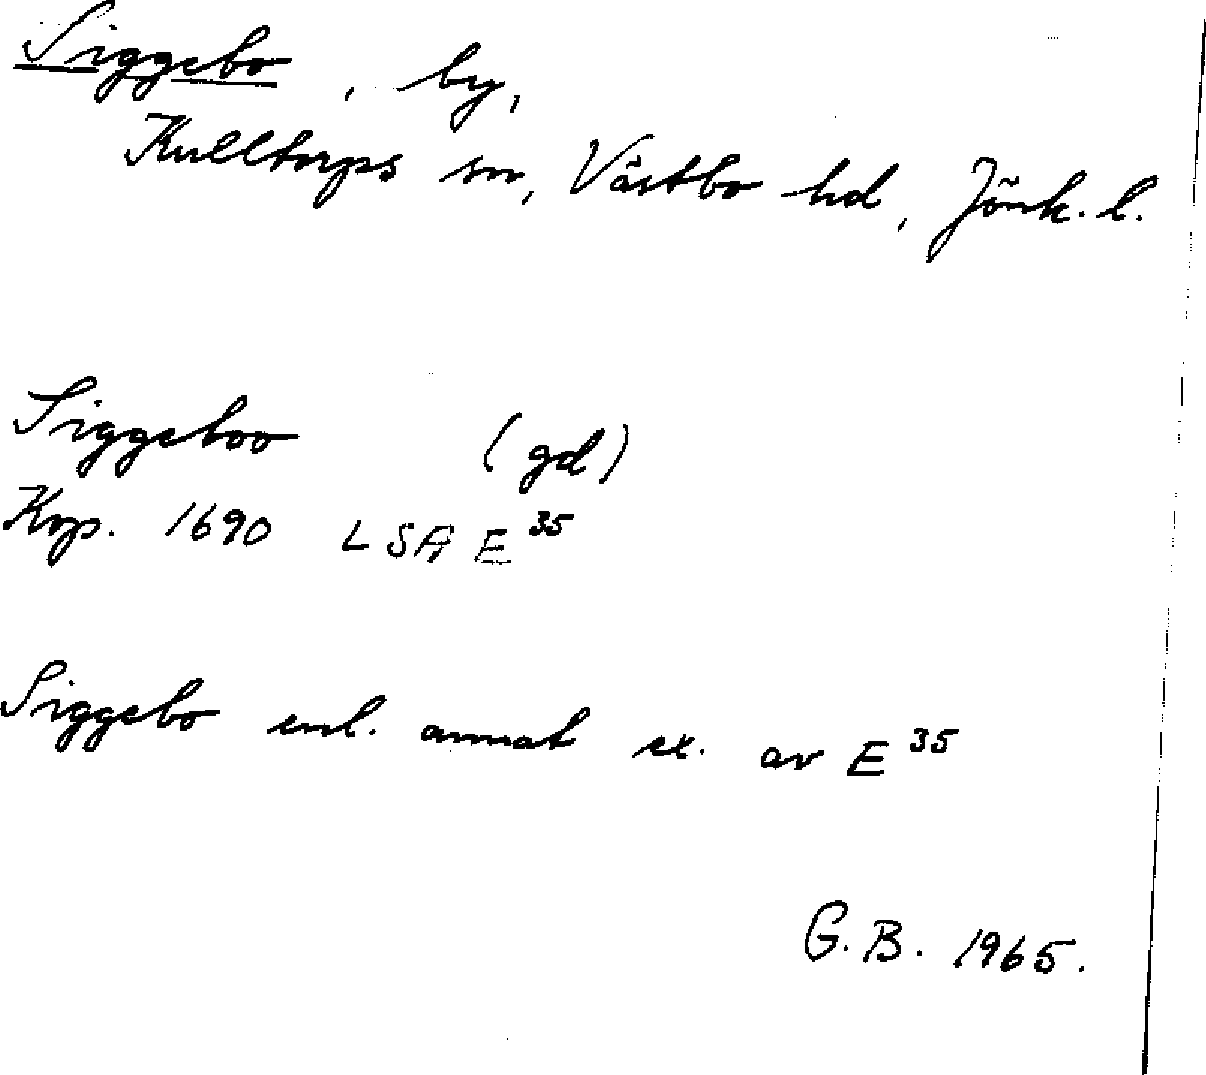 Siggebo, by,
Kulltorps sn, Västbo hd, Jönk. l.
Siggeboo (gd)
Kop. 1690 LSA E 35
Siggebo enl. annat ex. av E 35
G. B. 1965.